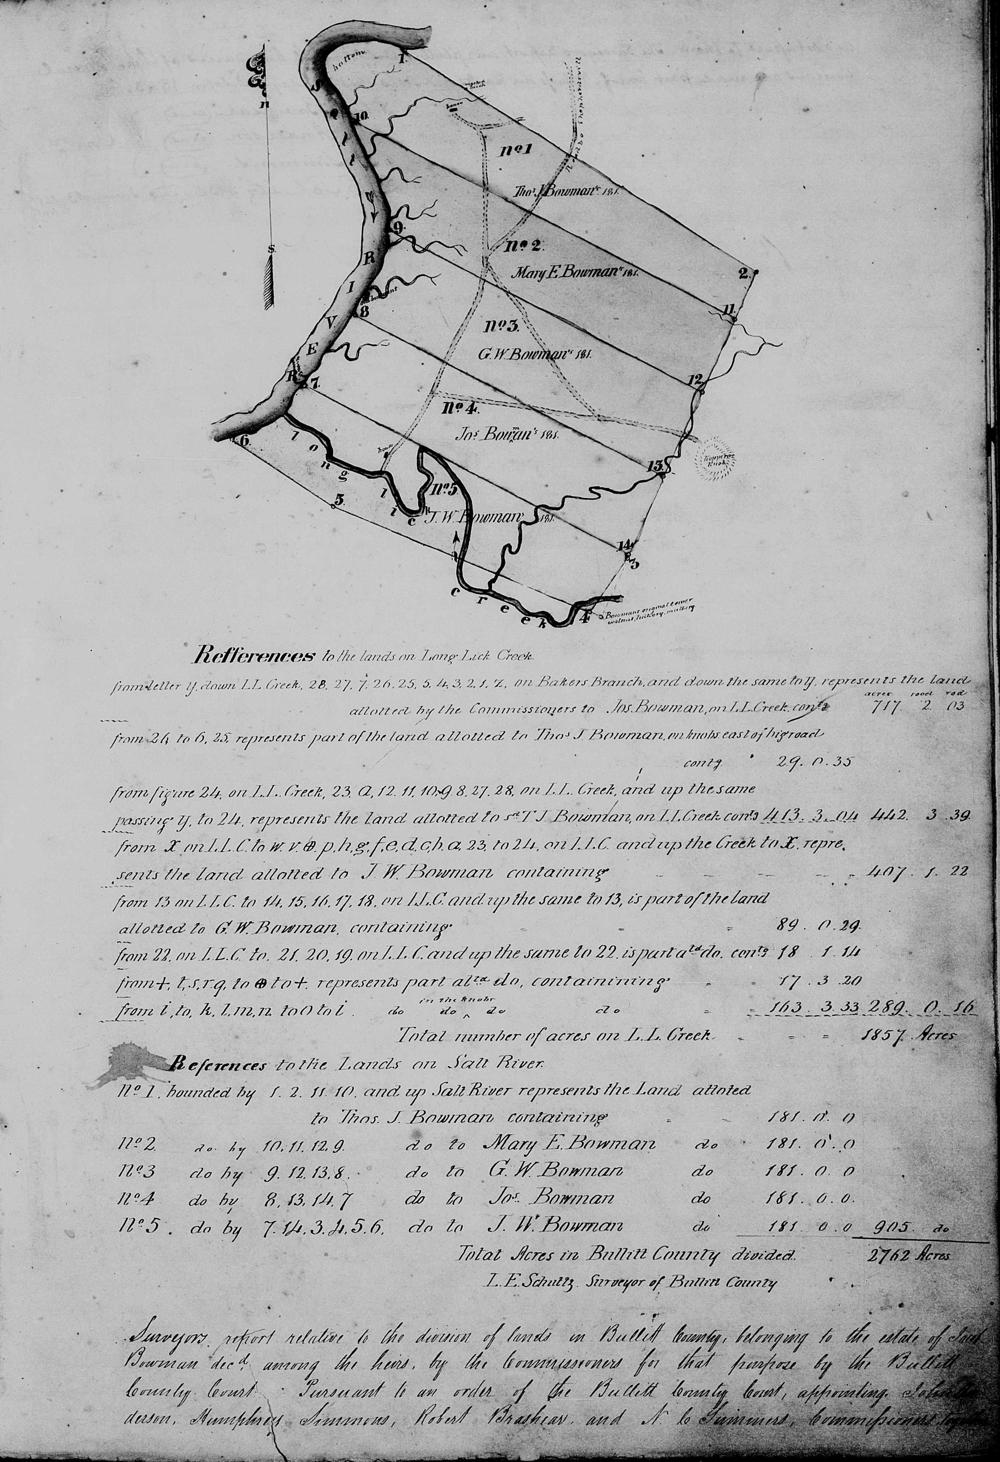 n
S
bottom
1
Salt RIVER
10
nº1
Thos J. Bowman's 181.
9
nº2.
Mary E. Bowman's 181.
2.
11
8
nº3.
G.W. Bowman's 181.
12
7.
nº4.
Jos Bowman's 181.
6.
long lick creek
13
5
nº5
J.W. Bowman 181.
14
3
4
Bowmans original corner
walnut, hickory, mulbery
Refferences to the lands on Long Lick Creek.
from letter y, down L.L. Creek, 28, 27, 7, 26, 25, 5, 4, 3, 2, 1, Z, on Bakers Branch, and down the same to y, represents the land
acres rood rod
allotted by the Commissioners to Jos. Bowman, on L.L. Creek, contg 717. 2 03
from 26 to 6, 25 represents part of the land allotted to Thos J Bowman, on knobs east of big road
contg 29. 0. 35
from figure 24, on L.L. Creek, 23, a, 12, 11, 10, 9, 8, 27, 28, on L.L. Creek, and up the same
passing y, to 24, represents the land allotted to sd T J Bowman, on L.L. Creek contg 413. 3. 04 442. 3 39
from X, on L.L.C. to w. v. ⊕, p, h, g, f, e, d, c, b, a, 23, to 24, on L.L.C. and up the Creek to X, repre,
sents the land allotted to J. W. Bowman containing 407. 1. 22
from 13 on L.L.C. to 14, 15, 16, 17, 18, on L.L.C. and up the same to 13, is part of the land
allotted to G.W. Bowman, containing 89. 0. 29.
from 22, on L.L.C. to 21, 20, 19, on L.L.C. and up the same to 22, is part altd do, contg 18. 1. 14
from +, t, s, r, q, to ⊕ to +, represents part altd do, containining 17. 3. 20
in the knobs
from i, to, k, l, m, n, to O to i do do do do 163. 3. 33 289. 0. 16
Total number of acres on L.L. Creek 1857. Acres
References to the Lands on Salt River.
nº1. bounded by 1. 2. 11. 10. and up Salt River represents the Land alloted
to Thos. J. Bowman containing 181. 0. 0
nº2 do by 10, 11, 12, 9. do to Mary E. Bowman do 181. 0. 0
nº3 do by 9. 12, 13, 8. do to G. W. Bowman do 181. 0. 0
nº4 do by 8, 13, 14, 7 do to Jos. Bowman do 181. 0. 0.
nº5. do by 7. 14. 3. 4. 5. 6. do to J. W. Bowman do 181. 0. 0 905. do
Total Acres in Bullitt County divided. 2762 Acres
L. E. Schultz. Surveyor of Bullitt County
Surveyors report relative to the division of lands in Bullitt County, belonging to the estate of
Bowman decd. among the heirs, by the Commissioners for that purpose by the Bullitt
County Court. Pursuant to an order of the Bullitt County Court, appointing John
derson, Humphrey Simmons, Robert Brashear and N C Summers, Commissioners